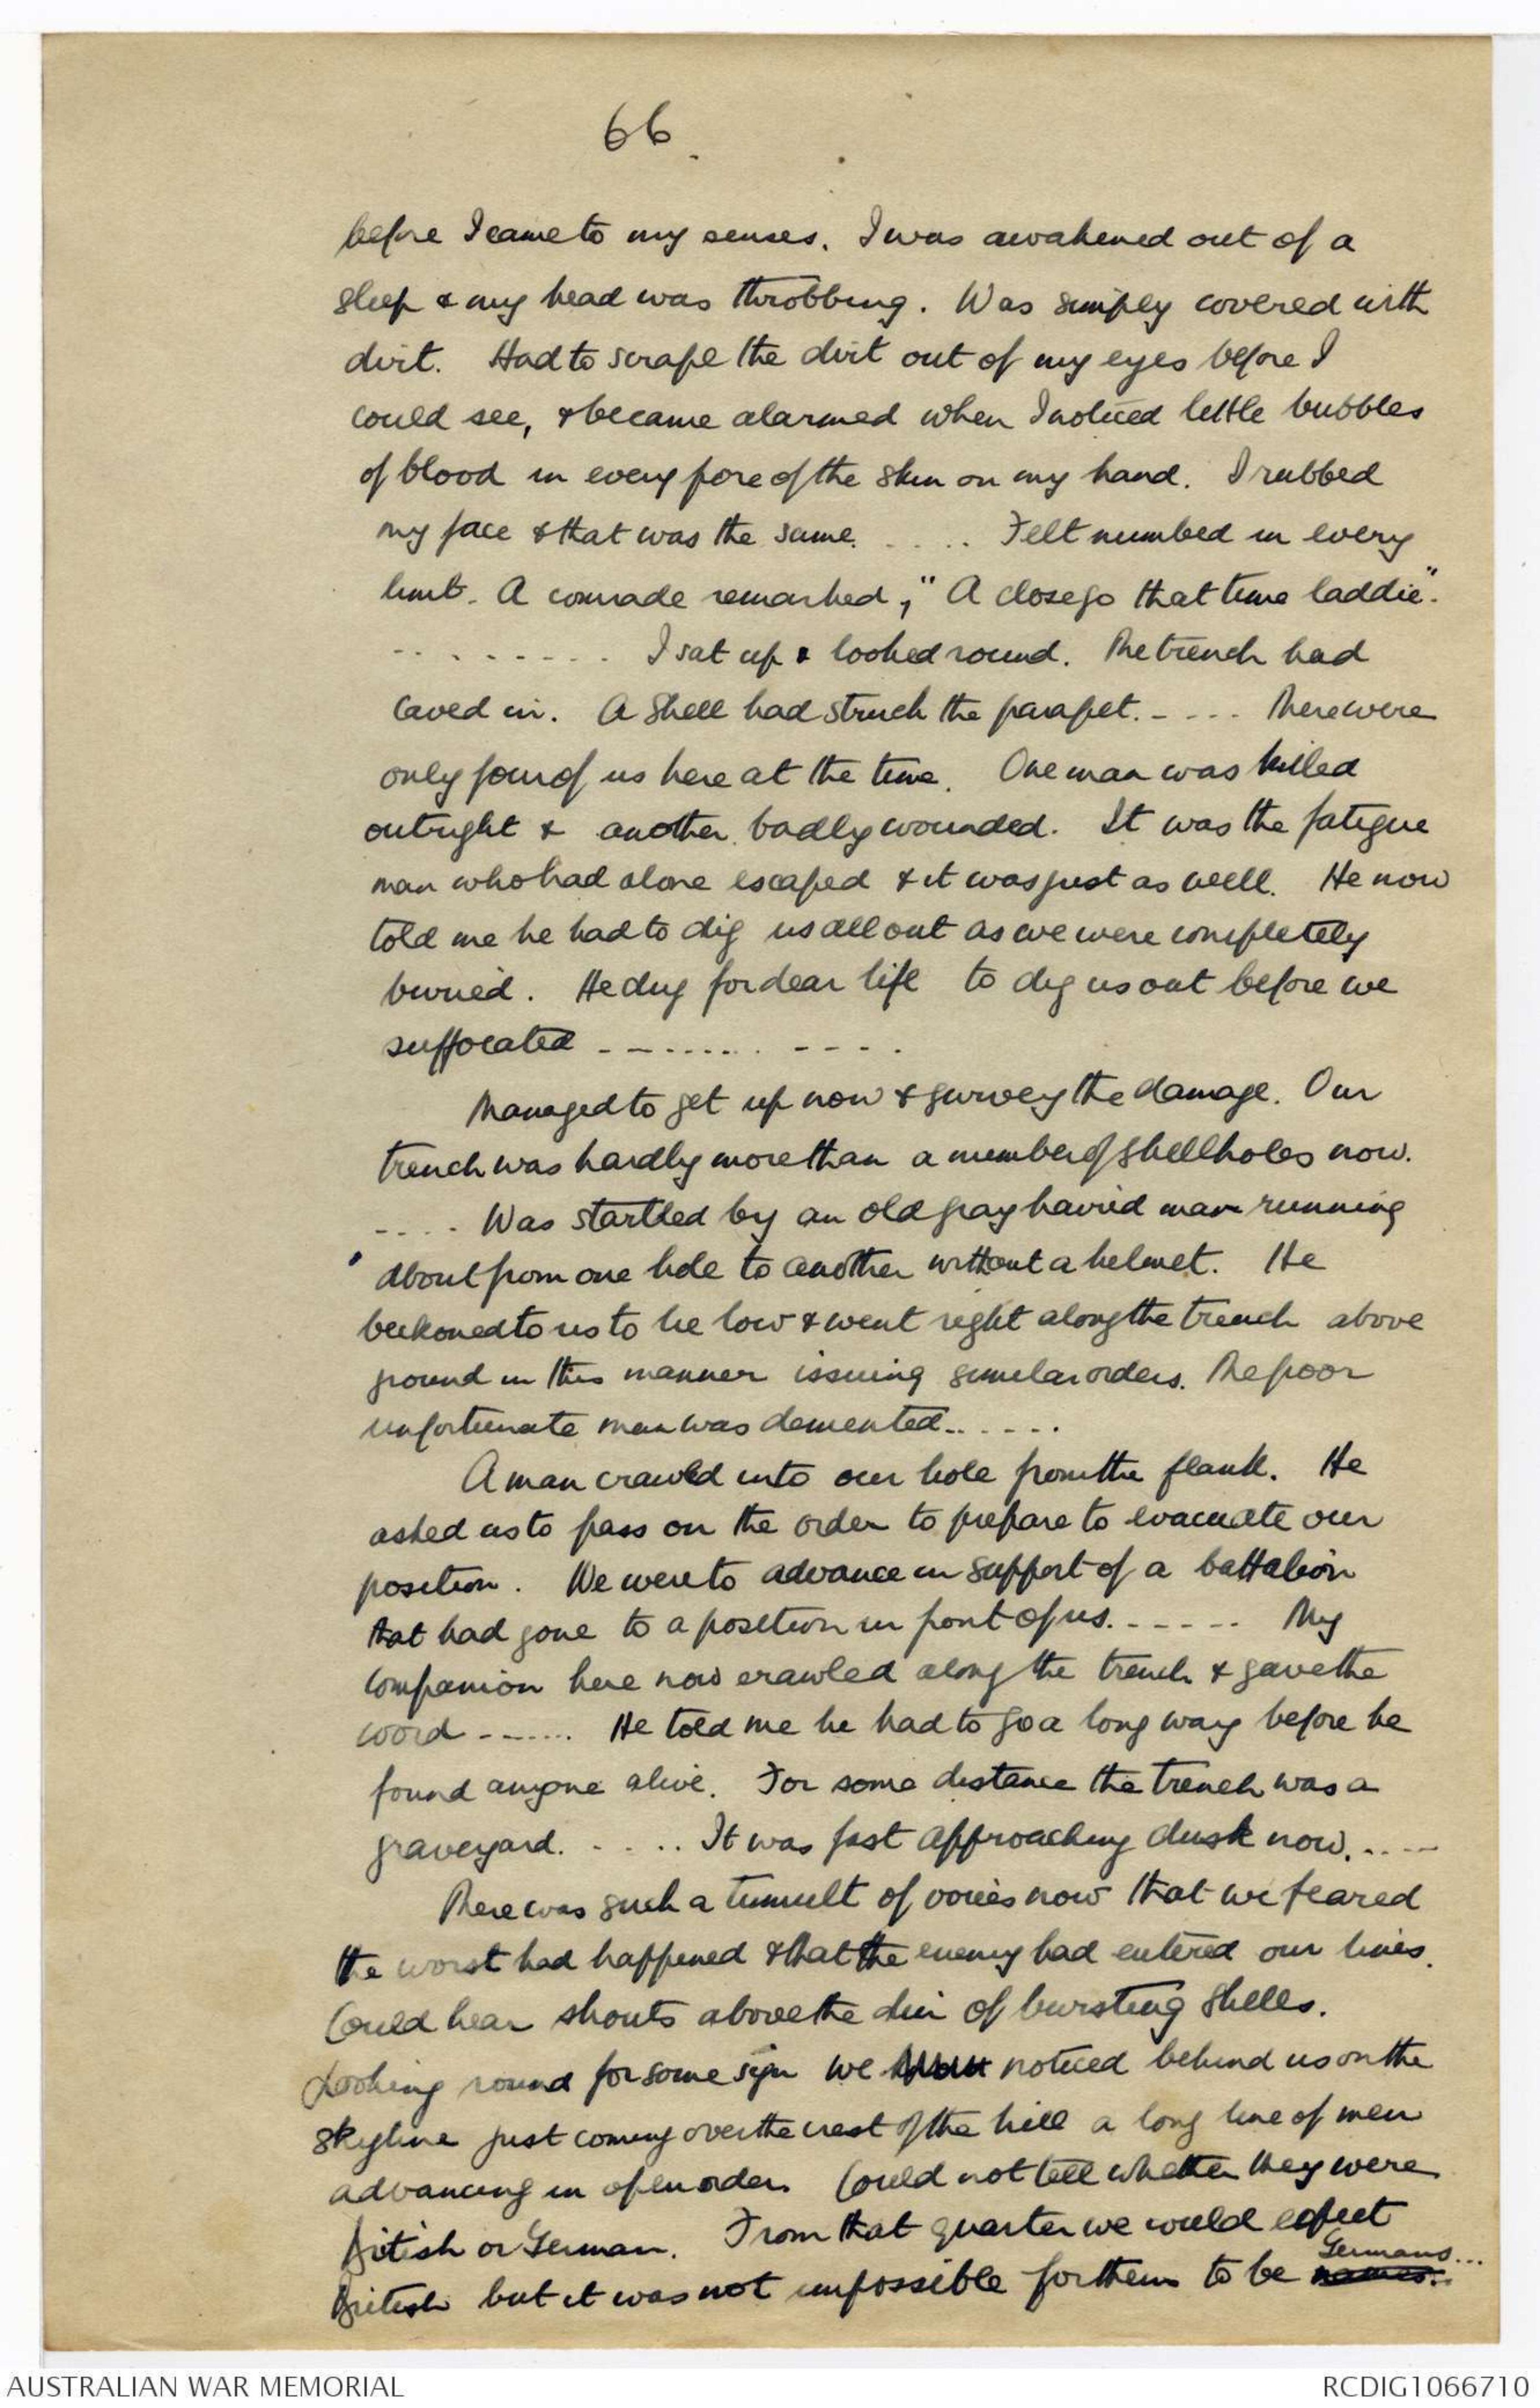 66.
before I came to my senses. I was awakened out of a
sleep & my head was throbbing. Was simply covered with
dirt. Had to scrape the dirt out of my eyes before I
could see, & became alarmed when I noticed little bubbles
of blood in every pore of the skin on my hand. I rubbed
my face & that was the same. . . . . Felt numbed in every
limb. A comrade remarked, "A close go that time laddie".
- - . . - - - - . I sat up & looked round. The trench had
caved in. A shell had struck the parapet. - . . . There were
only four of us here at the time. One man was killed
outright & another badly wounded. It was the fatigue
man who had alone escaped & it was just as well. He now
told me he had to dig us all out as we were completely
burried. He dug for dear life to dig us out before we
suffocated - - - . . . . . - - - .
Managed to get up now & survey the damage. Our
trench was hardly more than a number of shellholes now.
- - . . Was startled by an old gray haired man running
about from one hole to another without a helmet. He
beckoned to us to lie low & went right along the trench above
ground in this manner issuing similar orders. The poor
unfortunate man was demented. . . . . .
A man crawled into our hole from the flank. He
asked us to pass on the order to prepare to evacuate our
position. We were to advance in support of a battalion
that had gone to a position in front of us. - - - - - . My
companion here now crawled along the trench & gave the
word - - . . . . He told me he had to go a long way before he
found anyone alive. For some distance the trench was a
graveyard. . . . . It was fast approaching dusk now. . . - -
There was such a tumult of voices now that we feared
the worst had happened & that the enemy had entered our lines.
Could hear shouts above the din of bursting shells.
Looking round for some sign we noticed behind us on the
skyline just coming over the crest of the hill a long line of men
advancing in open order. Could not tell whether they were
British or German. From that quarter we would expect
British but it was not impossible for them to be Germans...
AUSTRALIAN WAR MEMORIAL
RCDIG1066710